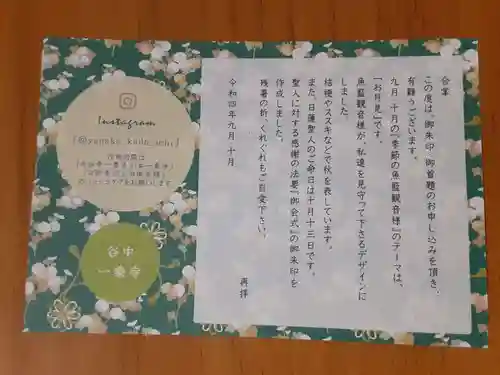 合掌
この度は、御朱印・御首題のお申し込みを頂き、
有難うございます。
九月・十月の『季節の魚藍観音様』のテーマは、
「お月見」です。
魚藍観音様が、私達を見守って下さるデザインに
しました。
桔梗やススキなどで秋を表しています。
また、日蓮聖人のご命日は十月十三日です。
聖人に対する感謝の法要『御会式』の御朱印を
作成しました。
残暑の折、くれぐれもご自愛下さい。
再拝
令和四年九月・十月
Instagram
谷中
一乗寺